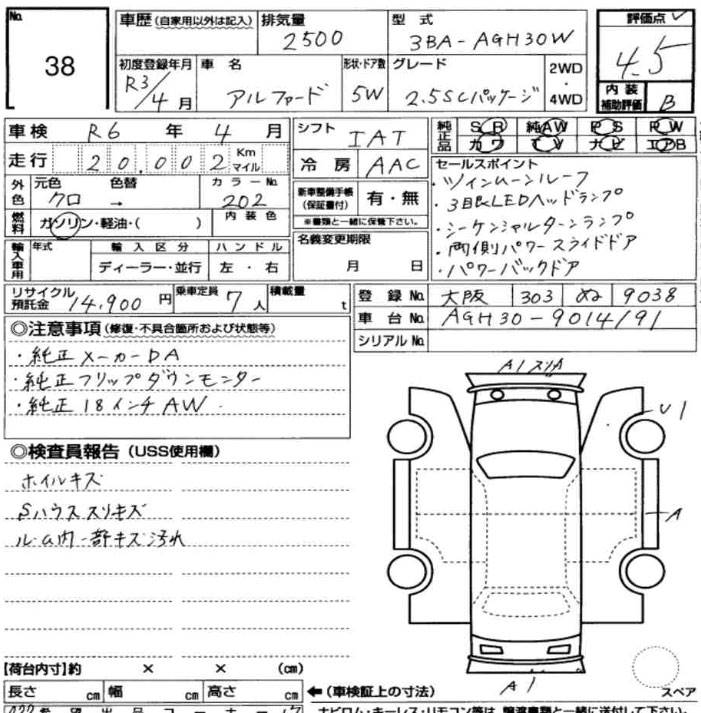 No. 38
車歴(自家用以外は記入) 排気量 2500 型式 3BA-AGH30W 評価点 4.5
初度登録年月 R3/4月 車名 アルファード 形状・ドア数 5W グレード 2.5SCパッケージ 2WD・4WD 内装補助評価 B
車検 R6年4月 シフト IAT 純正品 SR 純AW PS PW
カワ TV ナビ エアB
走行 20,002 Km マイル 冷房 AAC
外色 元色 クロ 色替 → カラーNo. 202 新車整備手帳(保証書付) 有・無
※書類と一緒に保管下さい。
燃料 ガソリン・軽油・( ) 内装色
名義変更期限 月 日
輸入車用 年式 輸入区分 ディーラー・並行 ハンドル 左・右
セールスポイント
・ツインムーンルーフ
・3眼LEDヘッドランプ
・シーケンシャルターンランプ
・両側パワースライドドア
・パワーバックドア
リサイクル預託金 14,900円 乗車定員 7人 積載量 t
登録No. 大阪 303 ぬ 9038
車台No. AGH30-9014191
シリアルNo.
◎注意事項(修復・不具合箇所および状態等)
・純正メーカーDA
・純正フリップダウンモニター
・純正18インチAW
◎検査員報告(USS使用欄)
ホイルキズ
Sハウススリキズ
ルーム内一部キズ汚れ
A1スリA
U1
A
A1
スペア
【荷台内寸】約 × × (cm)
長さ cm 幅 cm 高さ cm ←(車検証上の寸法)